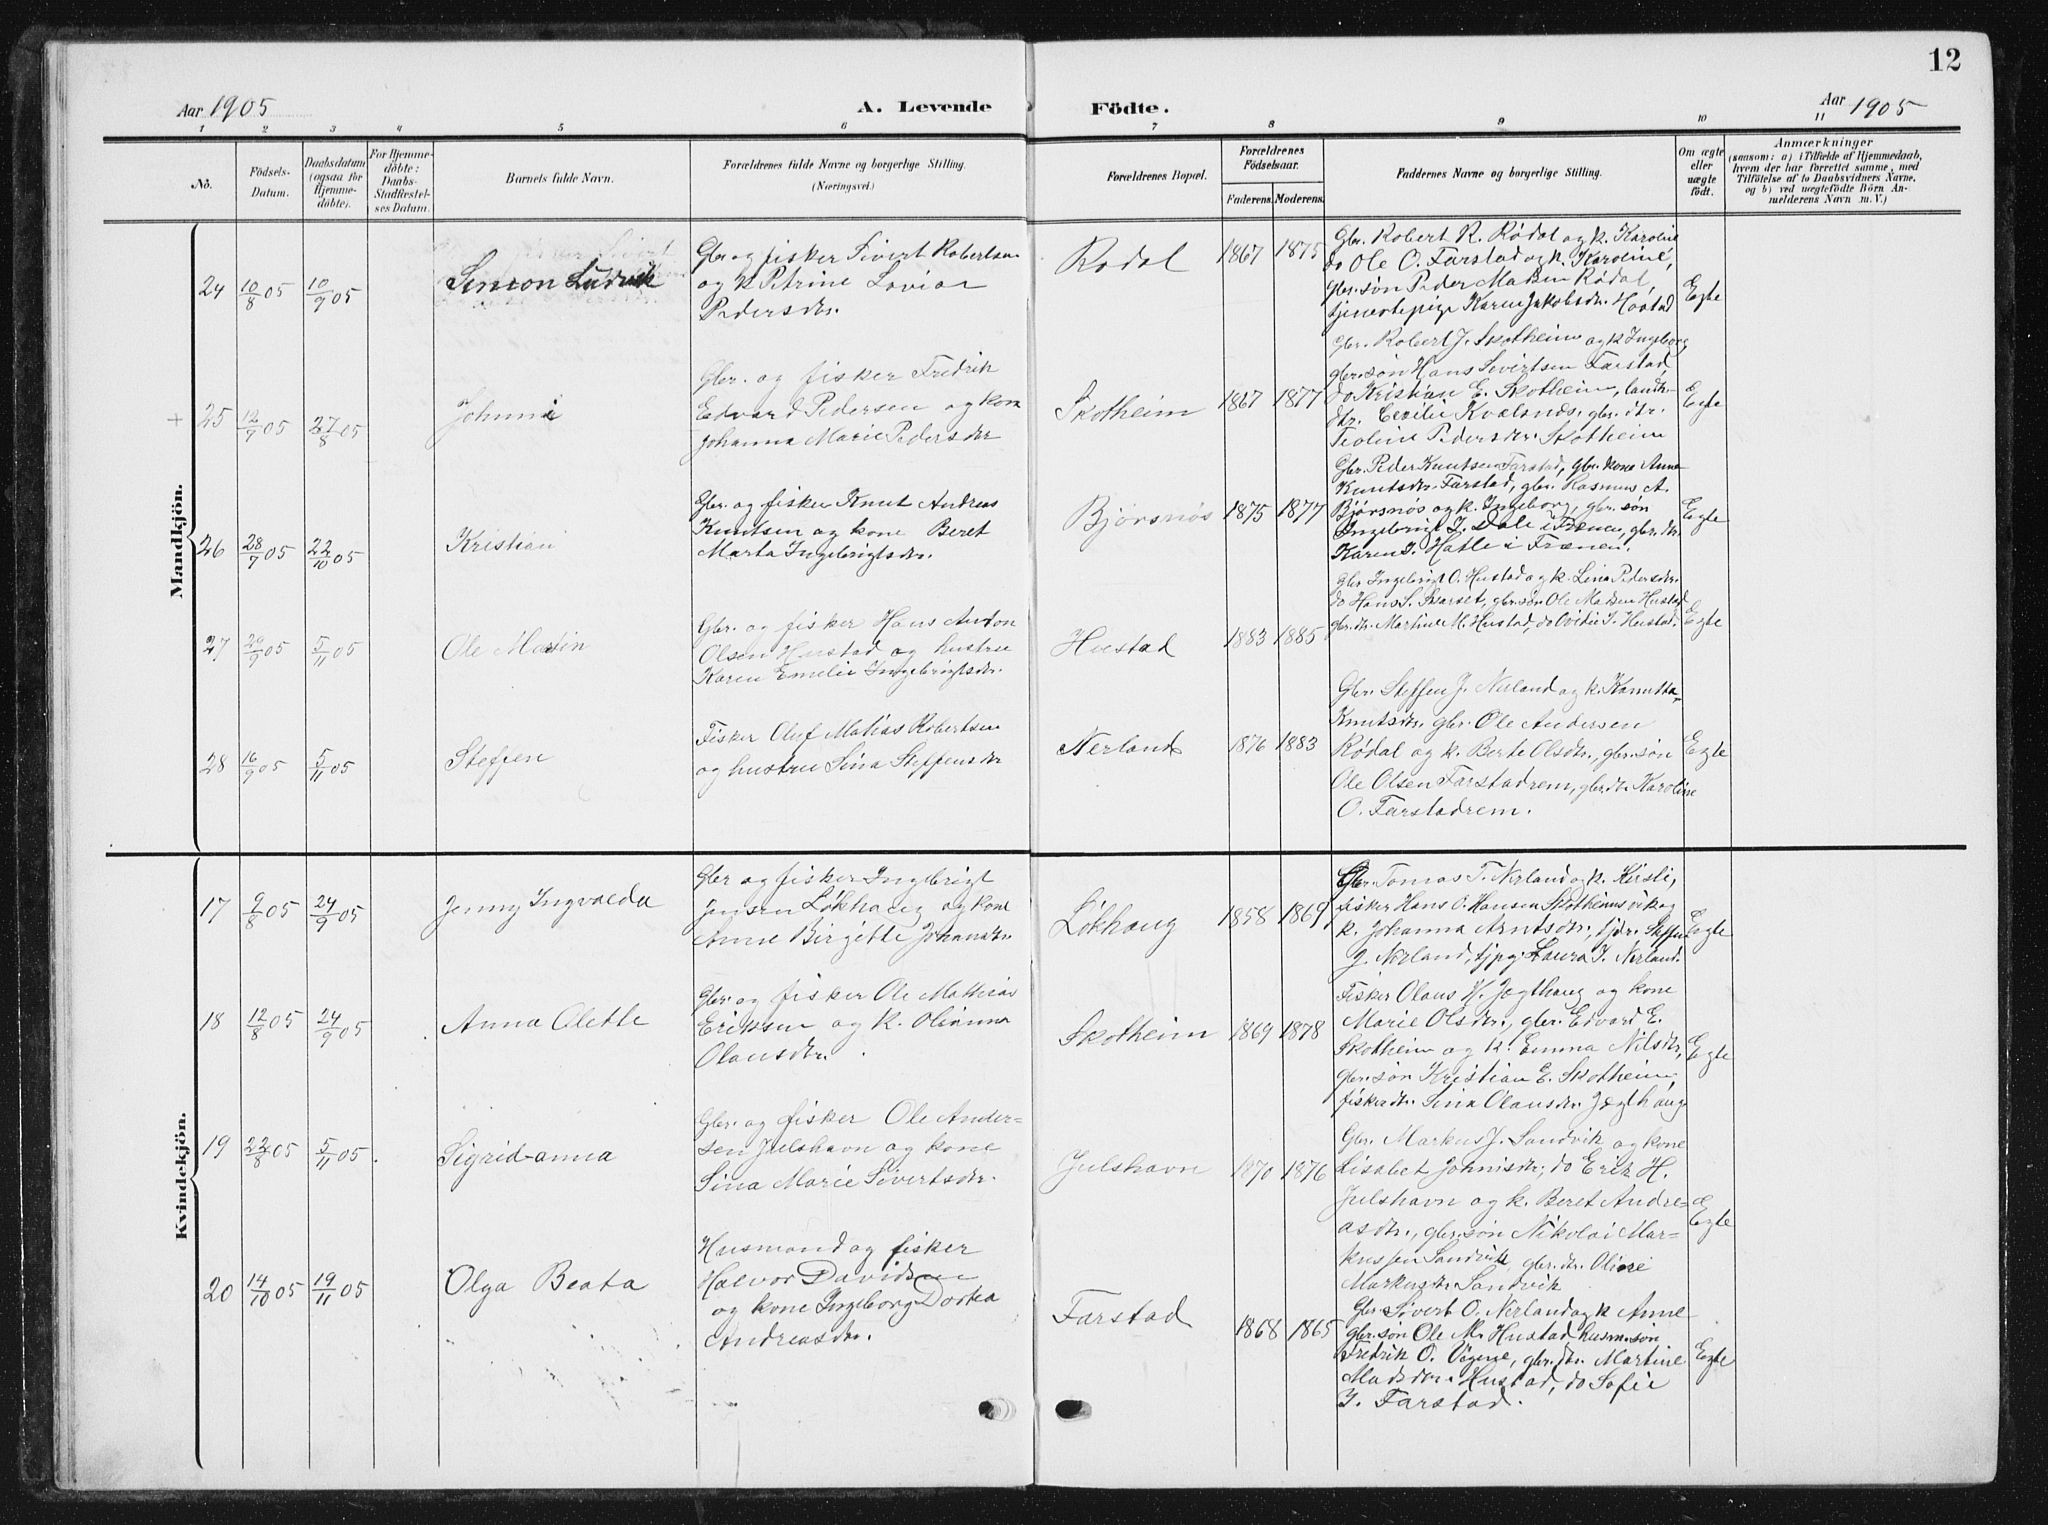 12
Aar 1905
A. Levende
Födte.
Aar 1905
1 2 3 4 5 6 7 8 9 10 11
No.
Födsels-
Datum.
Daabsdatum
(ogsaa for
Hjemme-
döbte).
For Hjemme-
döbte:
Daabs-
Stadfæstel-
ses Datum.
Barnets fulde Navn.
Forældrenes fulde Navne og borgerlige Stilling.
(Næringsvei.)
Forældrenes Bopæl.
Forældrenes
Födselsaar.
Faderens.
Moderens.
Faddernes Navne og borgerlige Stilling.
Om ægte
eller
uægte
födt.
Anmærkninger
(saasom: a) i Tilfælde af Hjemmedaab,
hvem der har forrettet samme, med
Tilföielse af to Daabsvidners Navne,
og b) ved uægtefödte Börn An-
melderens Navn m. V.)
Mandkjön.
24 10/8 05 10/9 05
Simon Ludvik
Gbr og fisker Sivert Robertsen
og k Petrine Lovise
Pedersdtr.
Rødal
1867 1875
Gbr. Robert R. Rødal og k. Karoline
do Ole O. Farstad og k. Karoline,
gbr.søn Peder Madsen Rødal,
tjenestepige Karen Jakobsdtr. Hostad
Egte
+ 25 12/7 05 27/8 05
Johnni
Gbr. og fisker Fredrik
Edvard Pedersen og kone
Johanna Marie Pedersdtr
Skotheim
1867 1877
Gbr. Robert J. Skotheim og k Ingeborg
gbr.søn Hans Severtsen Farstad,
do Kristian E. Skotheim, landh.
dtr. Cecilie Kvalsnes, gbr. dtr.
Teoline Pedersdtr. Skotheim
Egte
26 28/7 05 22/10 05
Kristian
Gbr. og fisker Knut Andreas
Knutsen og kone Beret
Marta Ingebrigtsdtr.
Bjørsnøs
1875 1877
Gbr. Peder Knutsen Farstad, gbr. kone Anne
Knutsdtr. Farstad, gbr. Rasmus A.
Bjørsnøs og k. Ingeborg, gbr. søn
Ingebrigt I. Dale i Frænen, gbr. dtr.
Karen I. Hatle i Frænen.
Egte
27 29/9 05 5/11 05
Ole Martin
Gbr. og fisker Hans Anton
Olsen Hustad og hustru
Karen Emelie Ingebrigtsdtr.
Hustad
1883 1885
Gbr Ingebrigt O. Hustad og k. Lina Pedersdtr.
do Hans S. Skarset, gbr.søn Ole Madsen Hustad
gbr. dtr. Martine M. Hustad, do Ovidie I. Hustad.
Egte
28 16/9 05 5/11 05
Steffen
Fisker Oluf Matias Robertsen
og hustru Sina Steffensdtr
Nerland
1876 1883
Gbr. Steffen J. Nerland og k. Kanutta
Knutsdtr. gbr. Ole Andersen
Rødal og k. Berte Olsdtr., gbr.søn
Ole Olsen Farstadrem, gbr.dtr. Karoline
O. Farstadrem.
Egte
Kvindekjön.
17 9/8 05 24/9 05
Jenny Ingvalda
Gbr og fisker Ingebrigt
Jensen Løkhaug og kone
Anne Birgitte Johansdtr.
Løkhaug
1858 1869
Gbr. Tomas T. Nerland og k. Kirsti,
fisker Hans O. Hansen Skotheimsvik og
k. Johanna Arntsdtr., tjdr. Steffen
J. Nerland, tjpg. Laura I. Nerland.
Egte
18 12/8 05 24/9 05
Anna Olette
Gbr. og fisker Ole Mathias
Eriksen og k. Olianna
Olausdtr.
Skotheim
1869 1878
Fisker Olaus H. Jægthaug og kone
Marie Olsdtr., gbr. Edvard E.
Skotheim og k. Emma Nilsdtr,
gbr.søn Kristian E. Skotheim,
fiskerdtr. Sina Olausdtr. Jægthaug
Egte
19 22/8 05 5/11 05.
Sigrid-anna
Gbr. og fisker Ole Ander-
sen Julshavn og kone
Sina Marie Sivertsdtr.
Julshavn
1870 1876
Gbr. Markus J. Sandvik og kone
Lisabet Johnisdtr, do Erik H.
Julshavn og k. Beret Andre-
asdtr., gbr.søn Nikolai Mar-
kussen Sandvik, gbr. dtr. Oline
Markusdtr Sandvik
Egte
20 14/10 05 19/11 05
Olga Beata
Husmand og fisker
Halvor Davidsen
og kone Ingeborg Dortea
Andreasdtr.
Farstad
1868 1865
Gbr. Sivert O. Nerland og k Anne
gbr.søn Ole M. Hustad, husm.søn
Fredrik O. Vegne, gbr. dtr. Martine
Madsdtr. Hustad, do Sofie
I. Farstad.
Egte